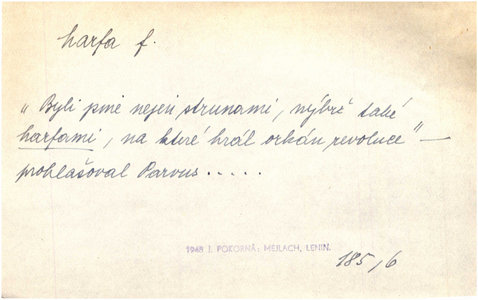 harfa f.
„Byli jsme nejen strunami, nýbrž také
harfami, na které hrál orkán revoluce" —
prohlašoval Parvus .....
1948 J. POKORNÁ: MEJLACH, LENIN.
185/6